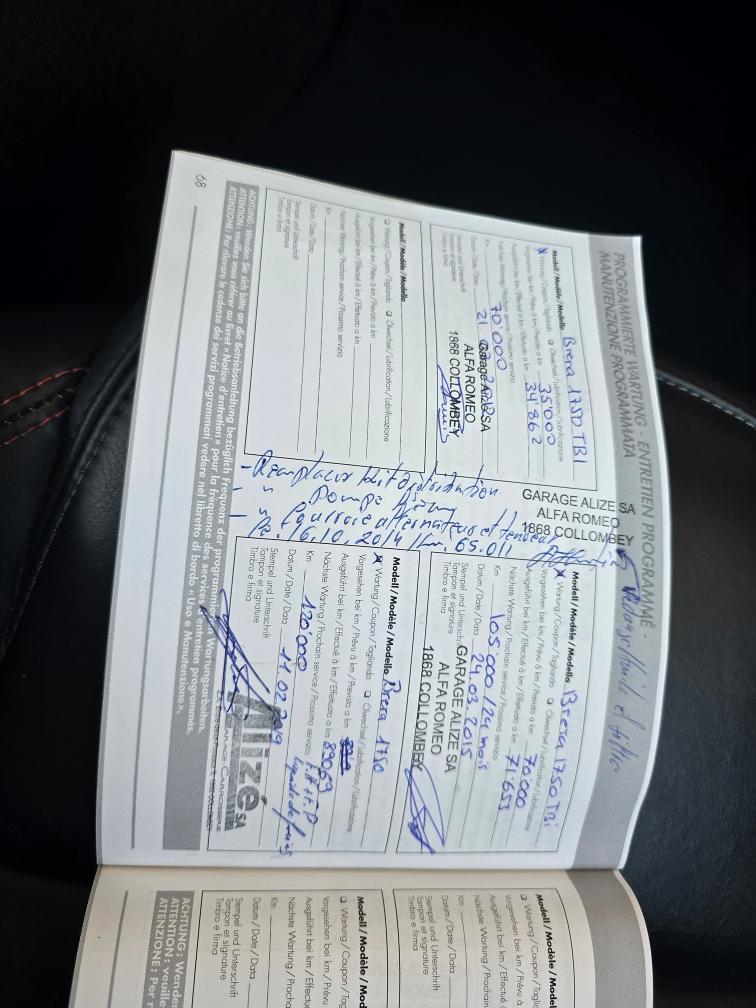 PROGRAMMIERTE WARTUNG - ENTRETIEN PROGRAMMÉ -
MANUTENZIONE PROGRAMMATA
Modell / Modèle / Modello Brera 1750 TBI
Wartung / Coupon / Tagliando Ölwechsel / Lubrification / Lubrificazione
Vorgesehen bei km / Prévu à km / Previsto a km 35'000
Ausgeführt bei km / Effectué à km / Effettuato a km 34'862
Nächste Wartung / Prochain service / Prossimo servizio
Km 70'000
Datum / Date / Data 21
Stempel und Unterschrift
Tampon et signature
Timbro e firma
Garage Alizé SA
ALFA ROMEO
1868 COLLOMBEY
Modell / Modèle / Modello
Wartung / Coupon / Tagliando Ölwechsel / Lubrification / Lubrificazione
Vorgesehen bei km / Prévu à km / Previsto a km
Ausgeführt bei km / Effectué à km / Effettuato a km
Nächste Wartung / Prochain service / Prossimo servizio
Km
Datum / Date / Data
Stempel und Unterschrift
Tampon et signature
Timbro e firma
GARAGE ALIZE SA
ALFA ROMEO
1868 COLLOMBEY
- Remplacer kit distribution
- " pompe
- " courroie alternateur et tendeur
16.10.2014 / km. 65.011
et filtre
Modell / Modèle / Modello Brera 1750 TBi
Wartung / Coupon / Tagliando Ölwechsel / Lubrification / Lubrificazione
Vorgesehen bei km / Prévu à km / Previsto a km 70'000
Ausgeführt bei km / Effectué à km / Effettuato a km 71'653
Nächste Wartung / Prochain service / Prossimo servizio
Km 105'000 / 24 mois
Datum / Date / Data 24.03.2015
Stempel und Unterschrift
Tampon et signature
Timbro e firma
GARAGE ALIZE SA
ALFA ROMEO
1868 COLLOMBEY
Modell / Modèle / Modello Brera 1750
Wartung / Coupon / Tagliando Ölwechsel / Lubrification / Lubrificazione
Vorgesehen bei km / Prévu à km / Previsto a km
Ausgeführt bei km / Effectué à km / Effettuato a km 89069
Nächste Wartung / Prochain service / Prossimo servizio
Km 120'000
Datum / Date / Data 11.02.2019
Stempel und Unterschrift
Tampon et signature
Timbro e firma
Alizé SA
GARAGE-CARROSSERIE
1868 COLLOMBEY
ACHTUNG: Wenden Sie sich bitte an die Betriebsanleitung bezüglich Frequenz der programmierten Wartungsarbeiten.
ATTENTION: veuillez vous référer au livret « Notice d'entretien » pour la fréquence des services d'entretien programmés.
ATTENZIONE: Per rilevare le cadenze dei servizi programmati vedere nel libretto di bordo « Uso e Manutenzione ».
68
Modell / Modèle / Mod
Wartung / Coupon / Tag
Vorgesehen bei km / Prévu à
Ausgeführt bei km / Effectué
Nächste Wartung / Prochain
Km
Datum / Date / Data
Stempel und Unterschrift
Tampon et signature
Timbro e firma
Modell / Modèle / Mod
Wartung / Coupon / Tag
Vorgesehen bei km / Prévu à km
Ausgeführt bei km / Effectu
Nächste Wartung / Procha
Km
Datum / Date / Data
Stempel und Unterschrift
Tampon et signature
Timbro e firma
ACHTUNG: Wende
ATTENTION: veuille
ATTENZIONE: Per r